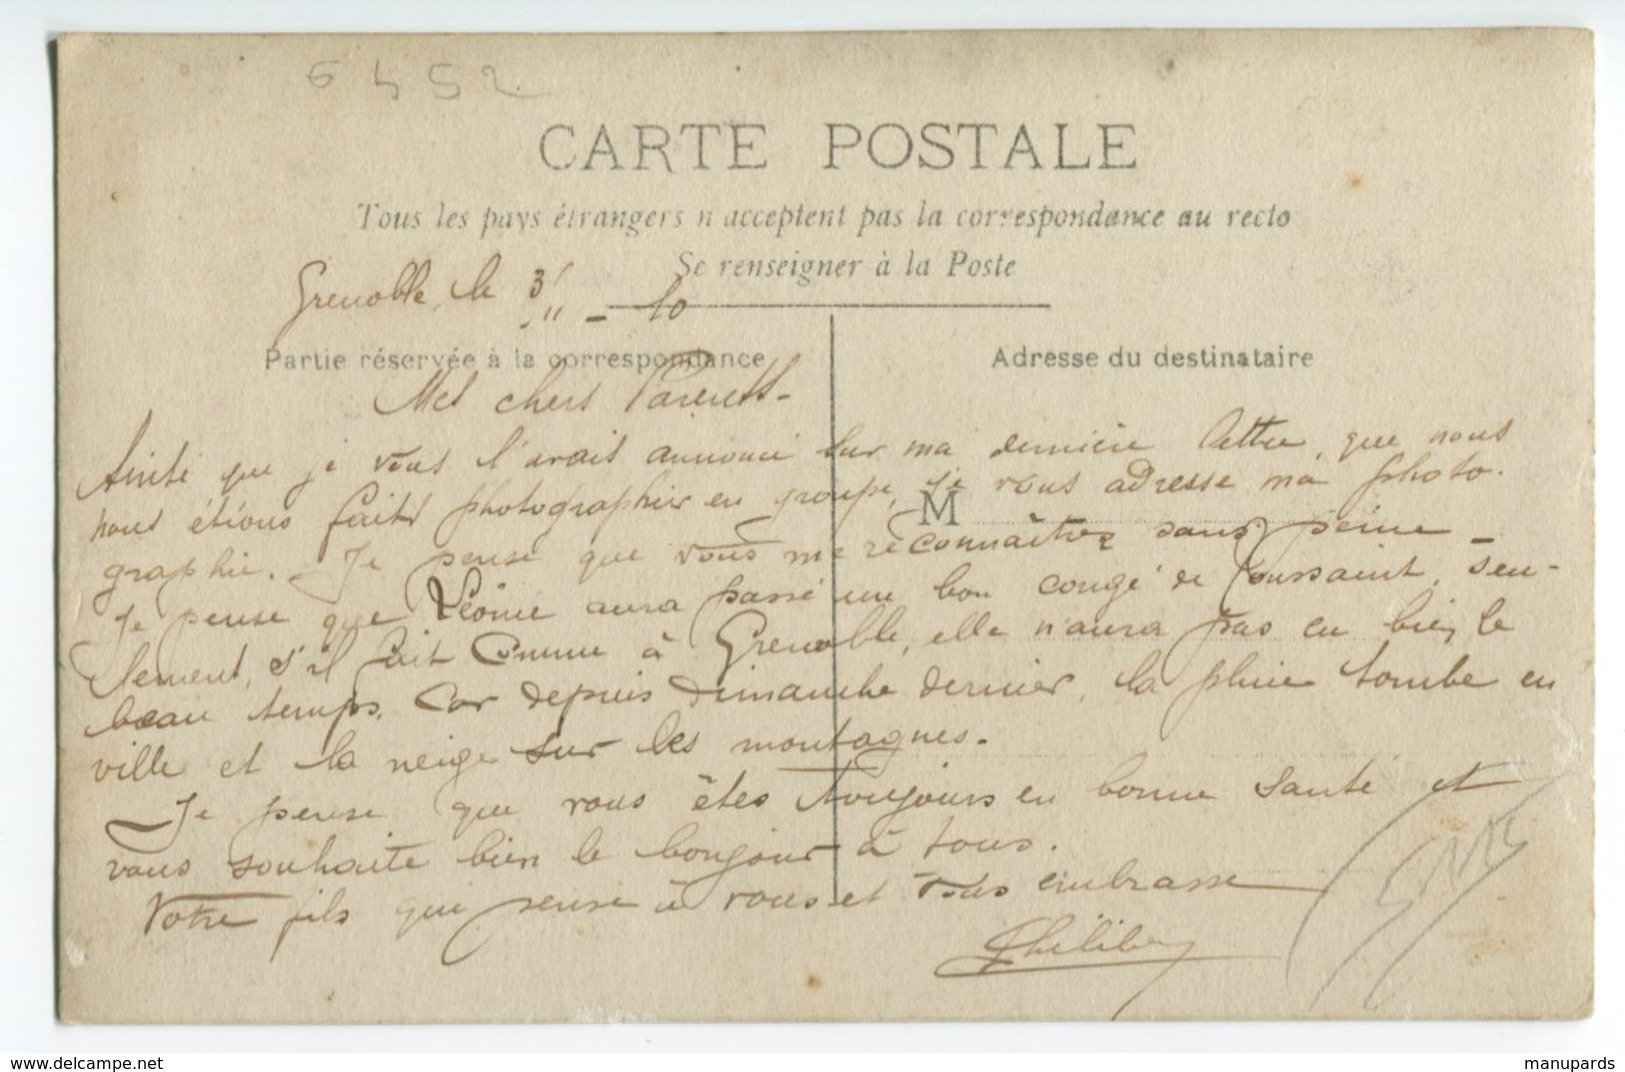 6452
CARTE POSTALE
Tous les pays étrangers n'acceptent pas la correspondance au recto
Se renseigner à la Poste
Grenoble, le 3/11 - 10
Partie réservée à la correspondance
Adresse du destinataire
Mes chers Parents -
Ainsi que je vous l'avais annoncé sur ma dernière lettre, que nous
nous étions faits photographier en groupe, je vous adresse ma photo-
M
graphie. Je pense que vous me reconnaîtrez sans peine -
Je pense que Léonie aura passé un bon congé de Toussaint, seu-
lement, s'il fait comme à Grenoble, elle n'aura pas eu bien le
beau temps. Car depuis Dimanche dernier, la pluie tombe en
ville et la neige sur les montagnes.
Je pense que vous êtes toujours en bonne santé et
vous souhaite bien le bonjour à tous.
Votre fils qui pense à vous et vous embrasse
manupards